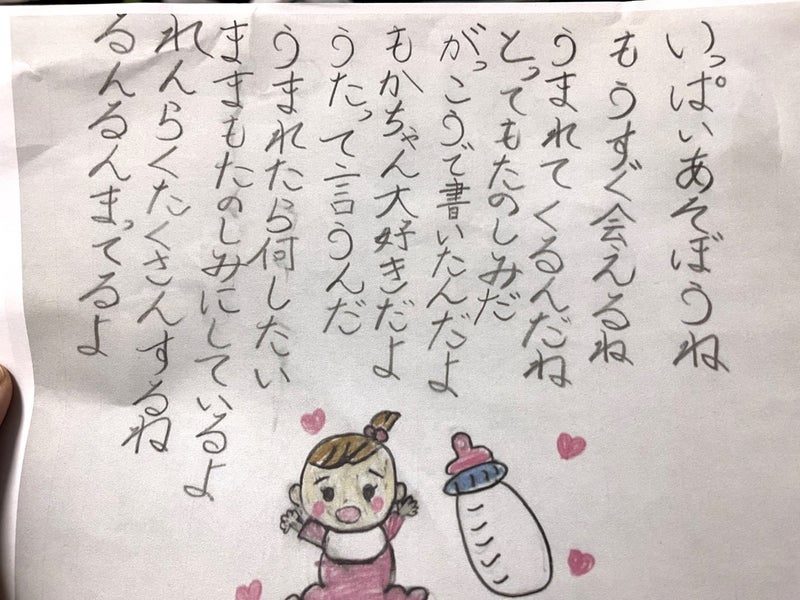 いっぱいあそぼうね
もうすぐ会えるね
うまれてくるんだね
とってもたのしみだ
がっこうで書いたんだよ
もかちゃん大好きだよ
うたって言うんだ
うまれたら何したい
ままもたのしみにしているよ
れんらくたくさんするね
るんるんまってるよ